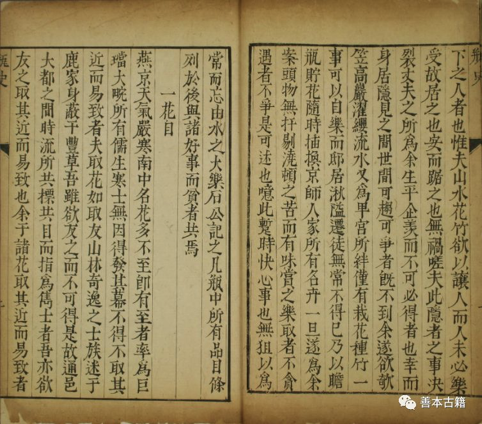 下之人者也惟夫山水花竹欲以讓人而人未必樂
受故居之也安而踞之也無禍嗟夫此隱者之事決
裂丈夫之所為余生平企羨而不可必得者也幸而
身居隱見之間世間可趨可爭者既不到余遂欲欹
笠高巖濯纓流水又為卑官所絆僅有栽花種竹一
事可以自樂而邸居湫隘遷徙無常不得已乃以膽
瓶貯花隨時插換京師人家所有名卉一旦遂為余
案頭物無扞剔澆頓之苦而有味賞之樂取者不貪
遇者不爭是可述也噫此暫時快心事也無狃以為
常而忘山水之大樂石公記之凡瓶中所有品目條
列於後與諸好事而貧者共焉
一花目
燕京天氣嚴寒南中名花多不至即有至者率為巨
璫大畹所有儒生寒士無因得發其幕不得不取其
近而易致者夫取花如取友山林奇逸之士族迷于
鹿豕身蔽于豐草吾雖欲友之而不可得是故通邑
大都之間時流所共標共目而指為雋士者吾亦欲
友之取其近而易致也余于諸花取其近而易致者
瓶史
善本古籍